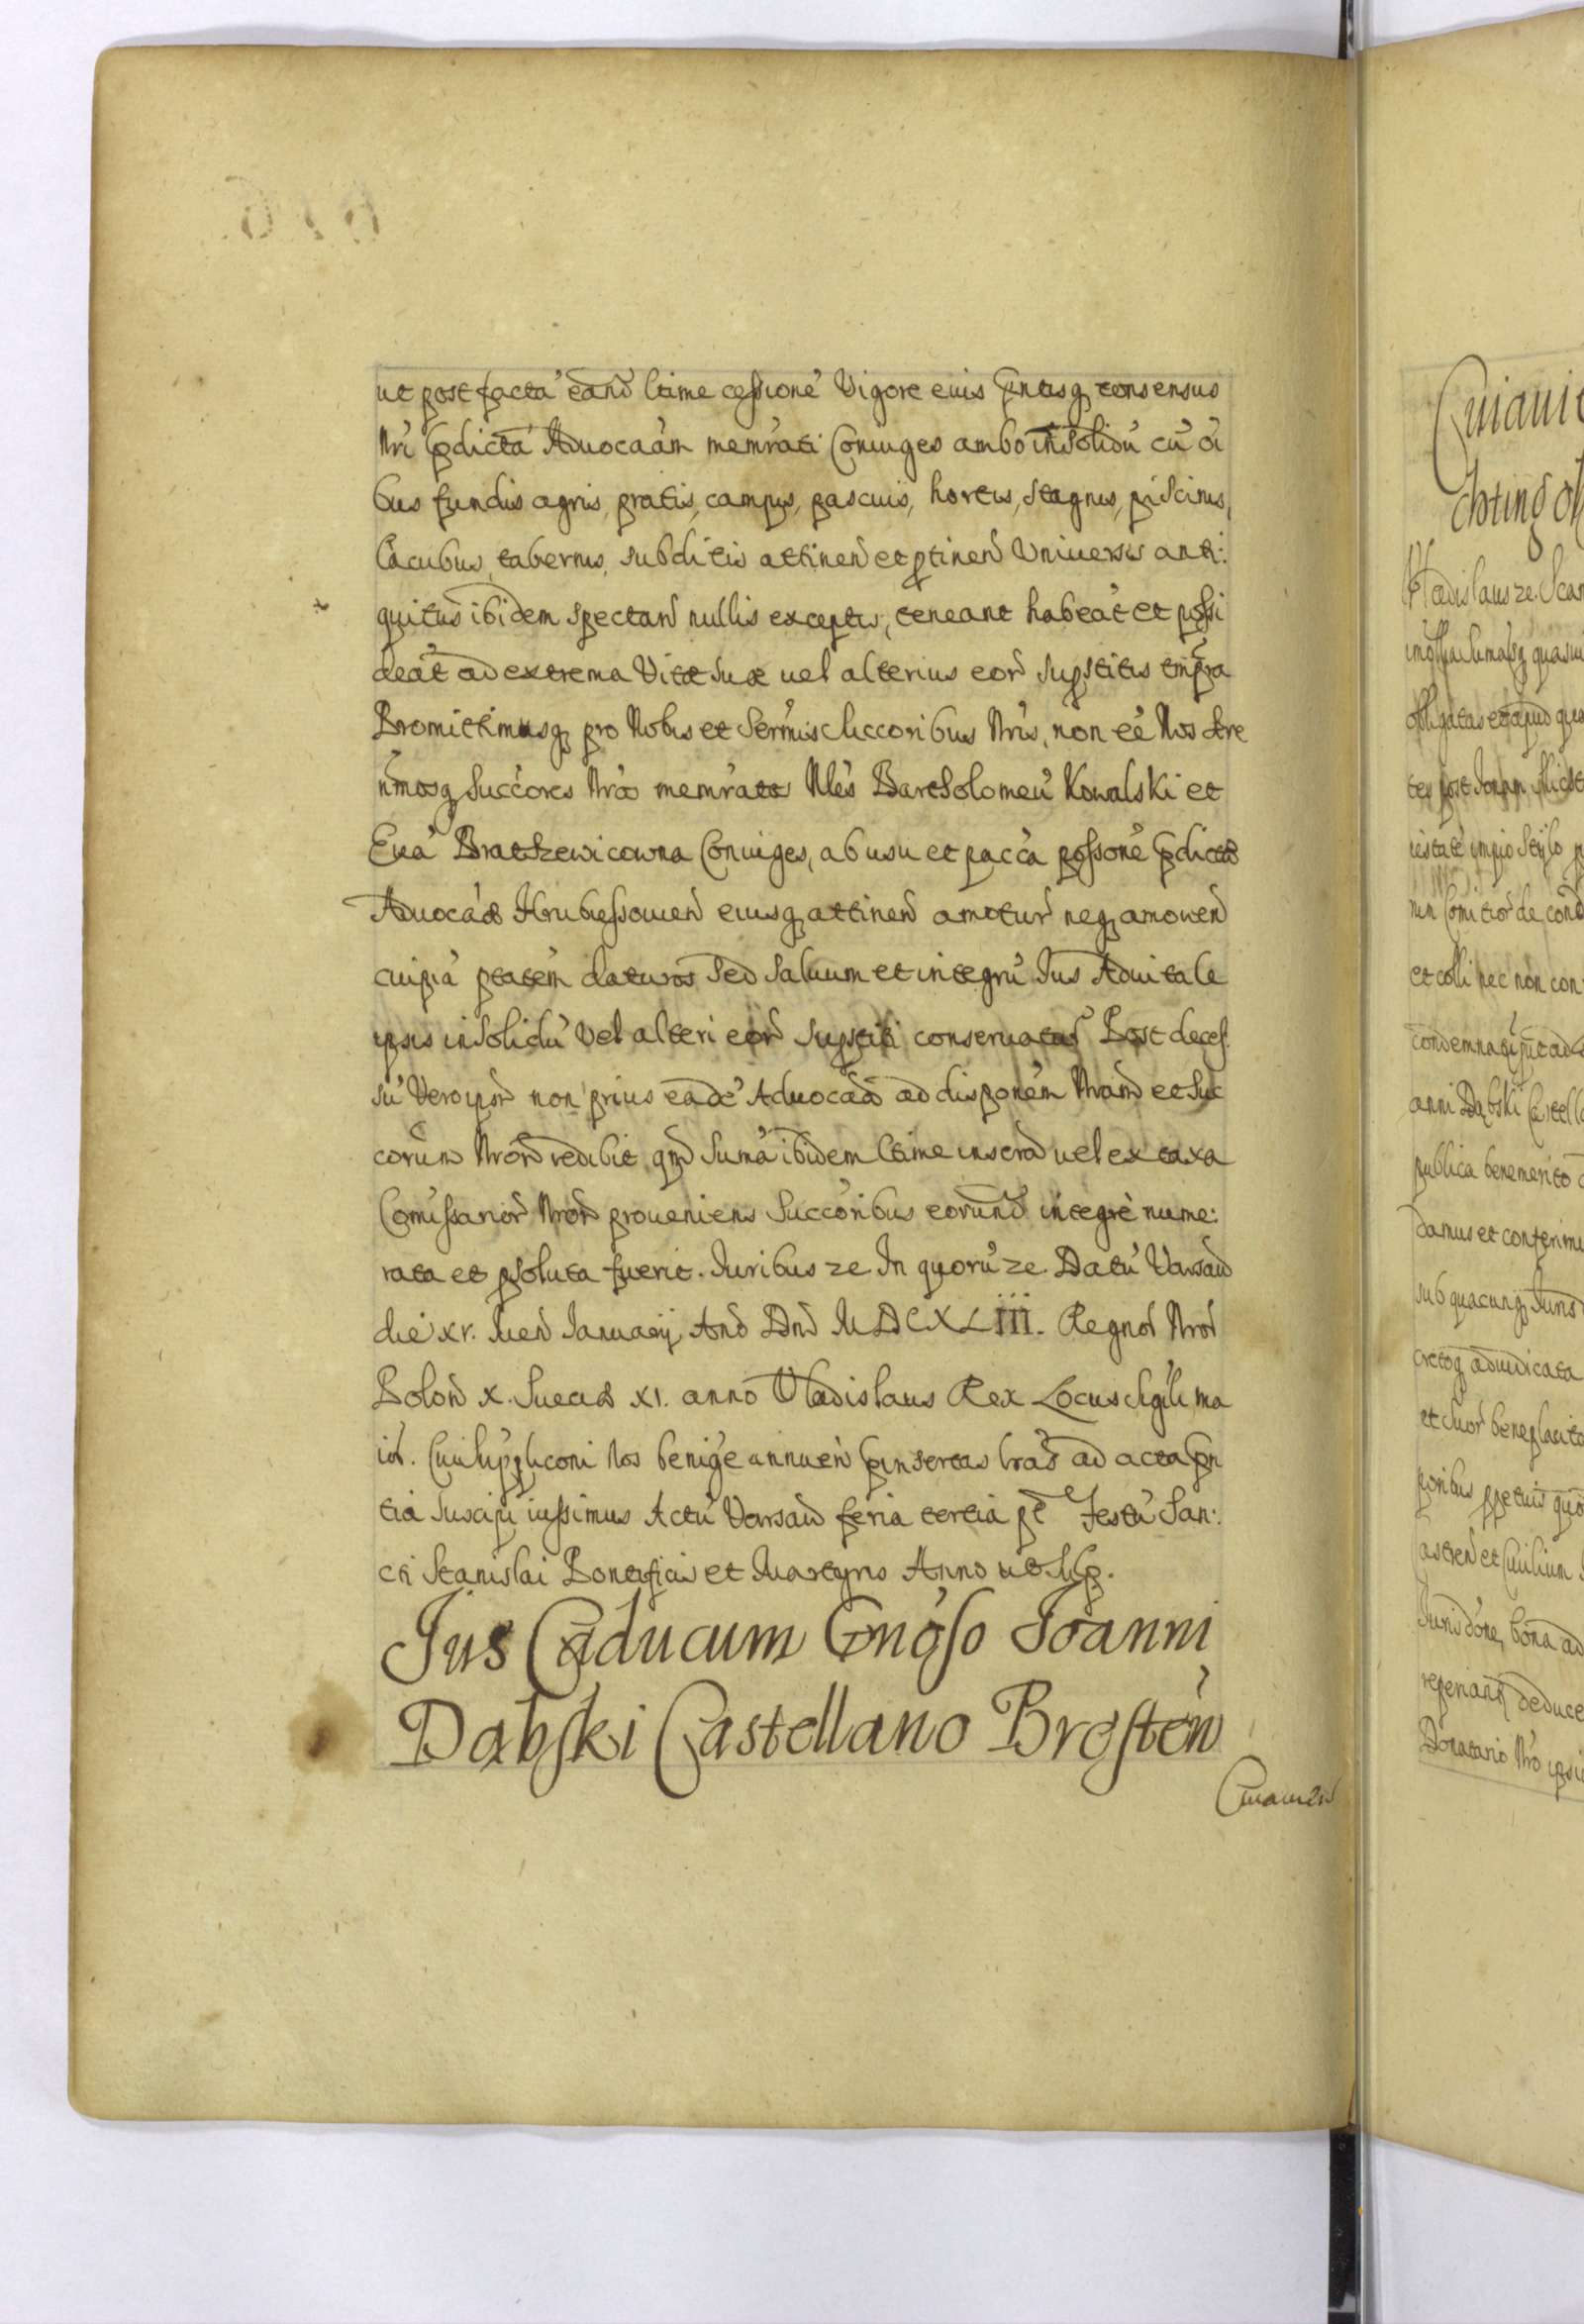 ut post factā eand ltime cessionē Vigore euis pntisq consensus
Nri pdictā Aduocaām memrati Coniuges ambo insolidū cū oi
bus fundis agris, pratis, campis, pascuis, hortis, stagnis, piscinis,
Lacubus, tabernis, subditis attinen et ptinen Uniuersis anti:
quitus ibidem spectan nullis exceptis, teneant habeāt et possi
deāt ad extrema Vitæ suæ uel alterius eor supstitis tmpra
Promittimusq pro Nobis et Sermis succoribus Nris, non eē Nos Sere
nmosq Succores Nros memratos Nles Bartholomeū Kowalski et
Euā Bratkewicowna Coniuges, ab usu et pacca possone pdictæ
Aduocaæ Hrubessouien eiusq attinen amotur neq amouen
cuipiā ptatem daturos Sed saluum et integrū Ius Aduitale
ipsis insolidū Vel alteri eor supstiti conseruatur Post deces
sū Vero ipsor non prius eadē Aduocaa ad disponem Nram et suc
corum Nror redibit, qm Sumā ibidem ltime inscra uel ex taxa
Comissarior Nror proueniens Succoribus eorund integrè nume:
rata et psoluta fuerit. Iuribus ze In quorū ze. Datū Varsau
die xv. Men Ianuarij, Ano Dni MDCXLIII. Regnor Nror
Polon X. Sueciæ XI. anno Vladislaus Rex Locus sigili ma
ior. Cui suppliconi Nos benige annuen pinsertas lras ad acta pn
tia suscipi iussimus Actū Varsau feria tertia pt Festū San:
cti Stanislai Pontificis et Martyris Anno ut sup.
Jus Caducum Gnoso Joanni
Dąbski Castellano Bresten
Cuiauien
6 7 6
Cuiauie
Vladislaus ze.
obligatas et apud
et colli nec non con
anni Dąbski Castell
publica benemerito
Damus et conferim
sub quacunq Iuris
cretoq adiudicata
et suor beneplacito
poribus ppetuis quo
astren et Ciuilium
Iurisdone, bona ad
reperiant deduce
Donatario Nro ipsi